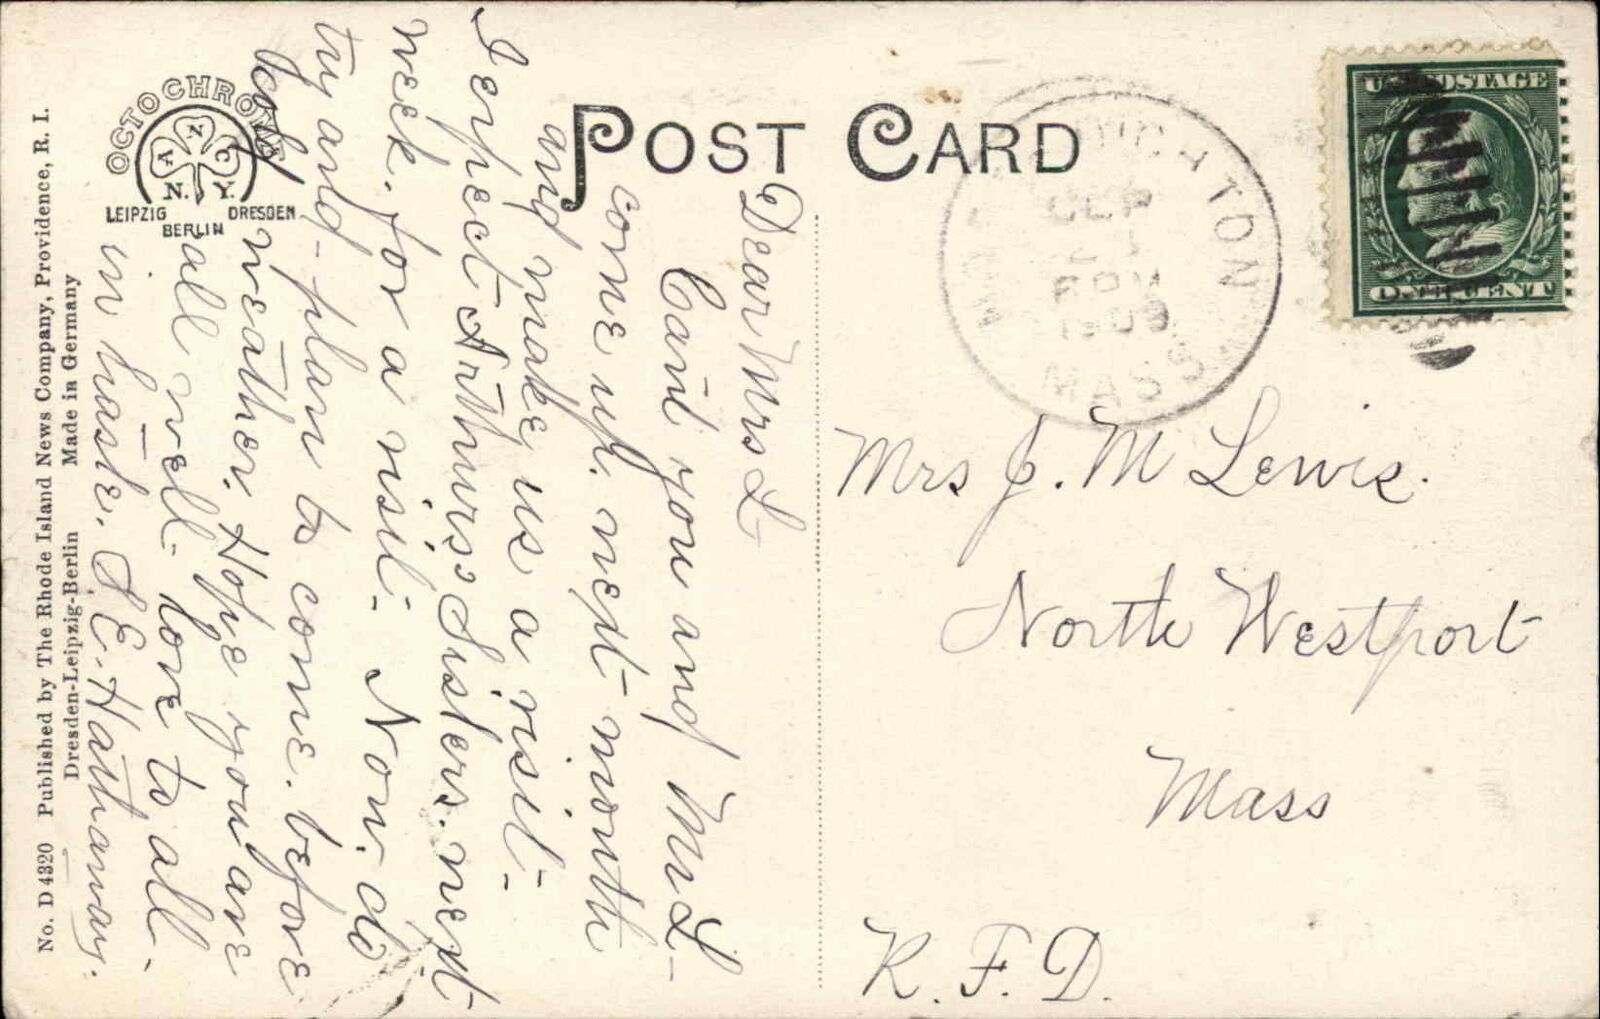 POST CARD
OCTOCHROME
A N C
N. Y.
LEIPZIG DRESDEN
BERLIN
No. D 4320 Published by The Rhode Island News Company, Providence, R. I.
Dresden-Leipzig-Berlin Made in Germany
Dear Mrs L
Cant you and Mr L-
come up. next month
and make us a visit-
I expect Arthurs Sisters. next
week. for a visit- Now. do
try and-plan to come. before
cold weather. Hope you are
all well- love to all-
in haste. S. E. Hathaway.
NORTH
SEP
1909
MASS.
U.S. POSTAGE
ONE CENT
Mrs J. M Lewis.
North Westport
Mass
R. F. D.